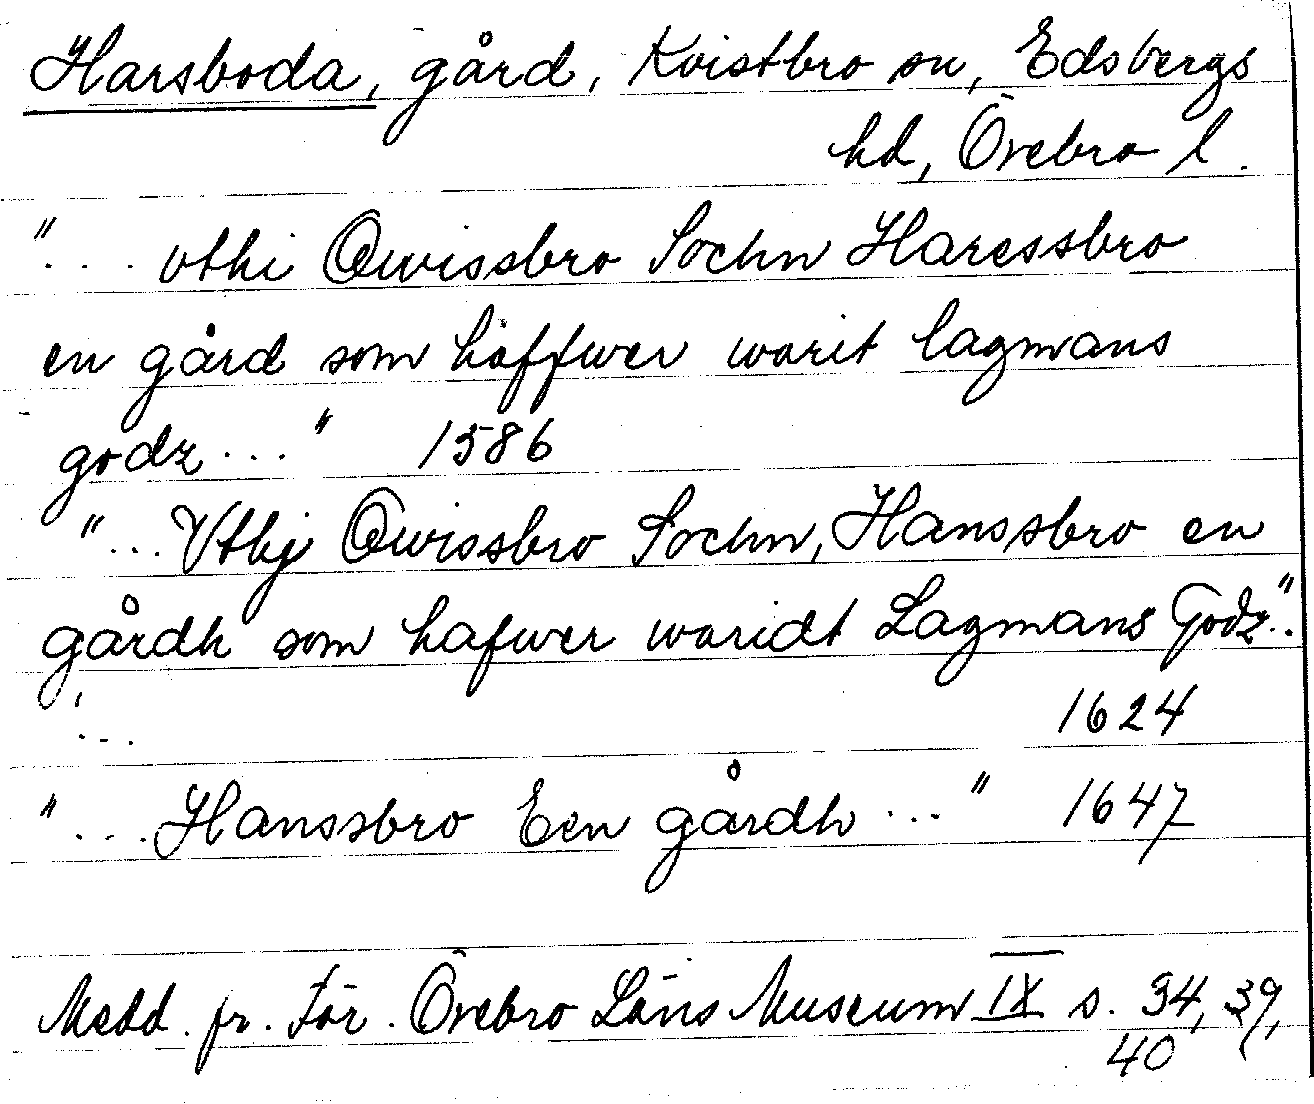 Harsboda, gård, Kvistbro sn, Edsbergs
hd, Örebro l.
"... vthi Qwissbro Sochn Haressbro
en gård som häffwer warit lagmans
godz ..." 1586
"... Vthj Qwissbro Sochn, Hanssbro en
gårdh som hafwer waridt Lagmans Godz..."
... 1624
"... Hanssbro Een gårdh ..." 1647
Medd. fr. För. Örebro Läns Museum IX s. 34, 39,
40